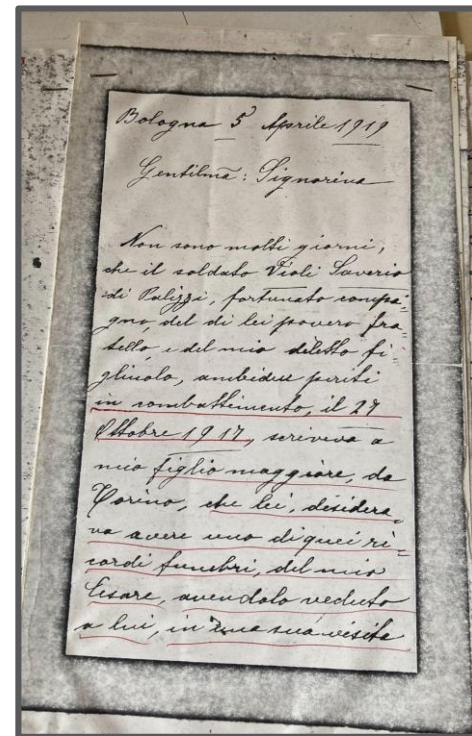 Bologna 5 Aprile 1919
Gentilma: Signorina
Non sono molti giorni,
che il soldato Violi Saverio
di Palizzi, fortunato compa-
gno, del di lei povero fra-
tello, e del mio diletto fi-
gliuolo, ambidue periti
in combattimento, il 27
Ottobre 1917, scriveva a
mio figlio maggiore, da
Torino, che lei, desidera-
va avere uno di quei ri-
cordi funebri, del mio
Cesare, avendolo veduto
a lui, in una sua visita